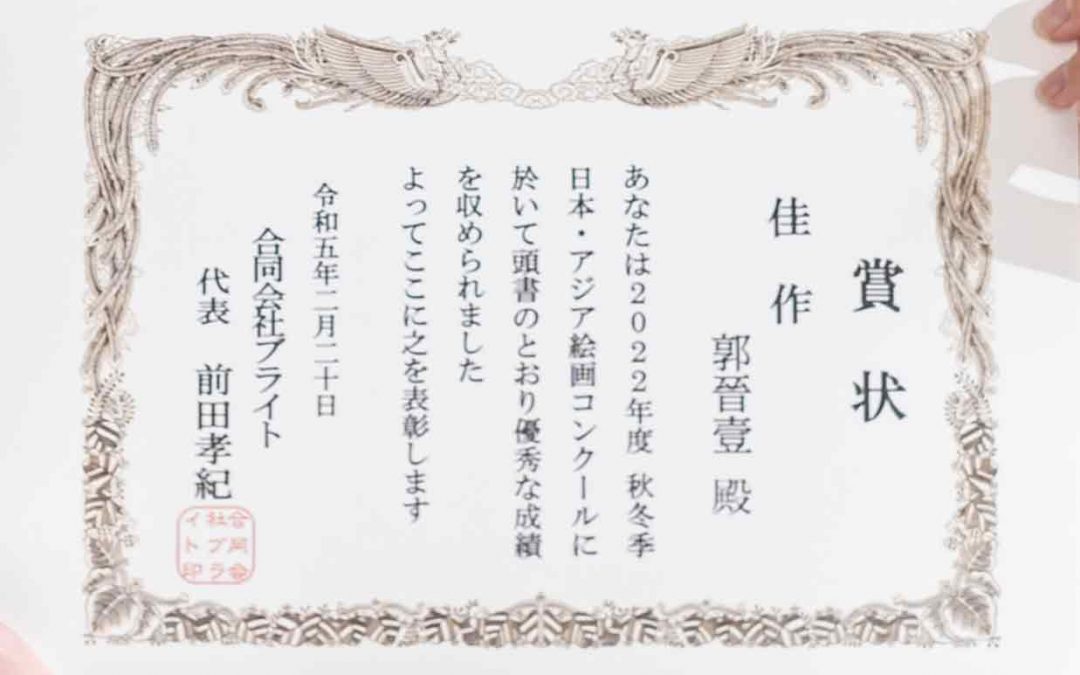 賞状
佳作
郭晉壹 殿
あなたは2022年度 秋冬季
日本・アジア絵画コンクールに
於いて頭書のとおり優秀な成績
を収められました
よってここに之を表彰します
令和五年二月二十日
合同会社ブライト
代表 前田孝紀
合同会
社ブラ
イト印